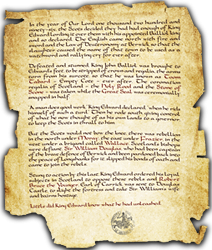 In the year of Our Lord one thousand two hundred and
ninety-six the Scots decided they had had enough of King
Edward Lording it over them with his appointed Balliol King
and so declared war. The English came north with fire and
sword and the Laws of Deuteronomy at Berwick so that the
slaughter caused the name of that town to be used as a
watchword and rallying cry for ever after.
Defeated and abased, King John Balliol was brought to
Edward's feet to be stripped of crown and regalia, the arms
torn from his surcoat so that he was known as Toom
Tabard - Empty Cote - ever after. The rest of the
regalia of Scotland - the Holy Rood and the Stone of
Scone - was taken and the Great Seal was ceremonially
snapped in half.
A man does good work, King Edward declared, when he rids
himself of such a turd. Then he rode south again, careful
of what he now thought of as his own lands to a governor
to keep the Scots in thrall to him.
But the Scots would not bow the knee; there was rebellion
in the north under Moray, the east under Frazier, in the
under a brigand called Wallace. Scotland's bishops
were defiant. Sir William Douglas, who had been captain
of the brave defence of Berwick and been pardoned back into
the peace of Longshanks for it, slipped his bonds of oath and
came to join the rebels.
Stung to action by this last, King Edward ordered his loyal
subjects in Scotland to oppose these rebels and Robert
Bruce the Young, Earl of Carrick was sent to Douglas
Castle, to dupe the fortress and take Sir William's wife
and bairns hostage.
Little did King Edward know what he had unleashed